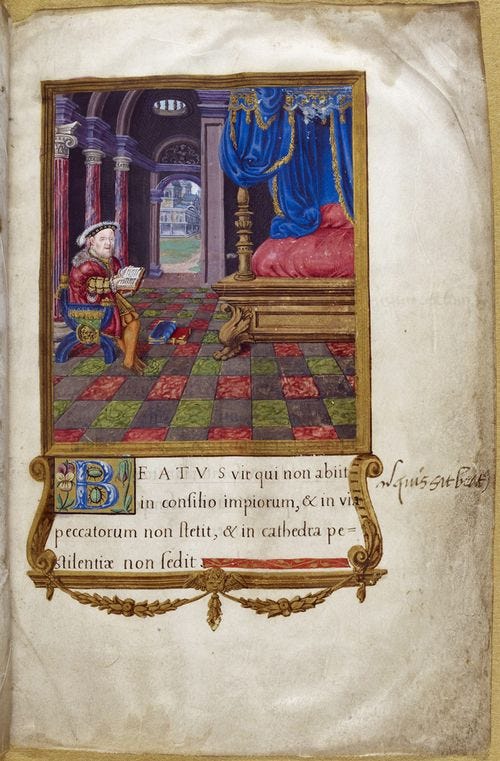 BEATVS vir qui non abiit
in consilio impiorum, & in via
peccatorum non stetit, & in cathedra pe=
stilentiæ non sedit.
quis sit beat